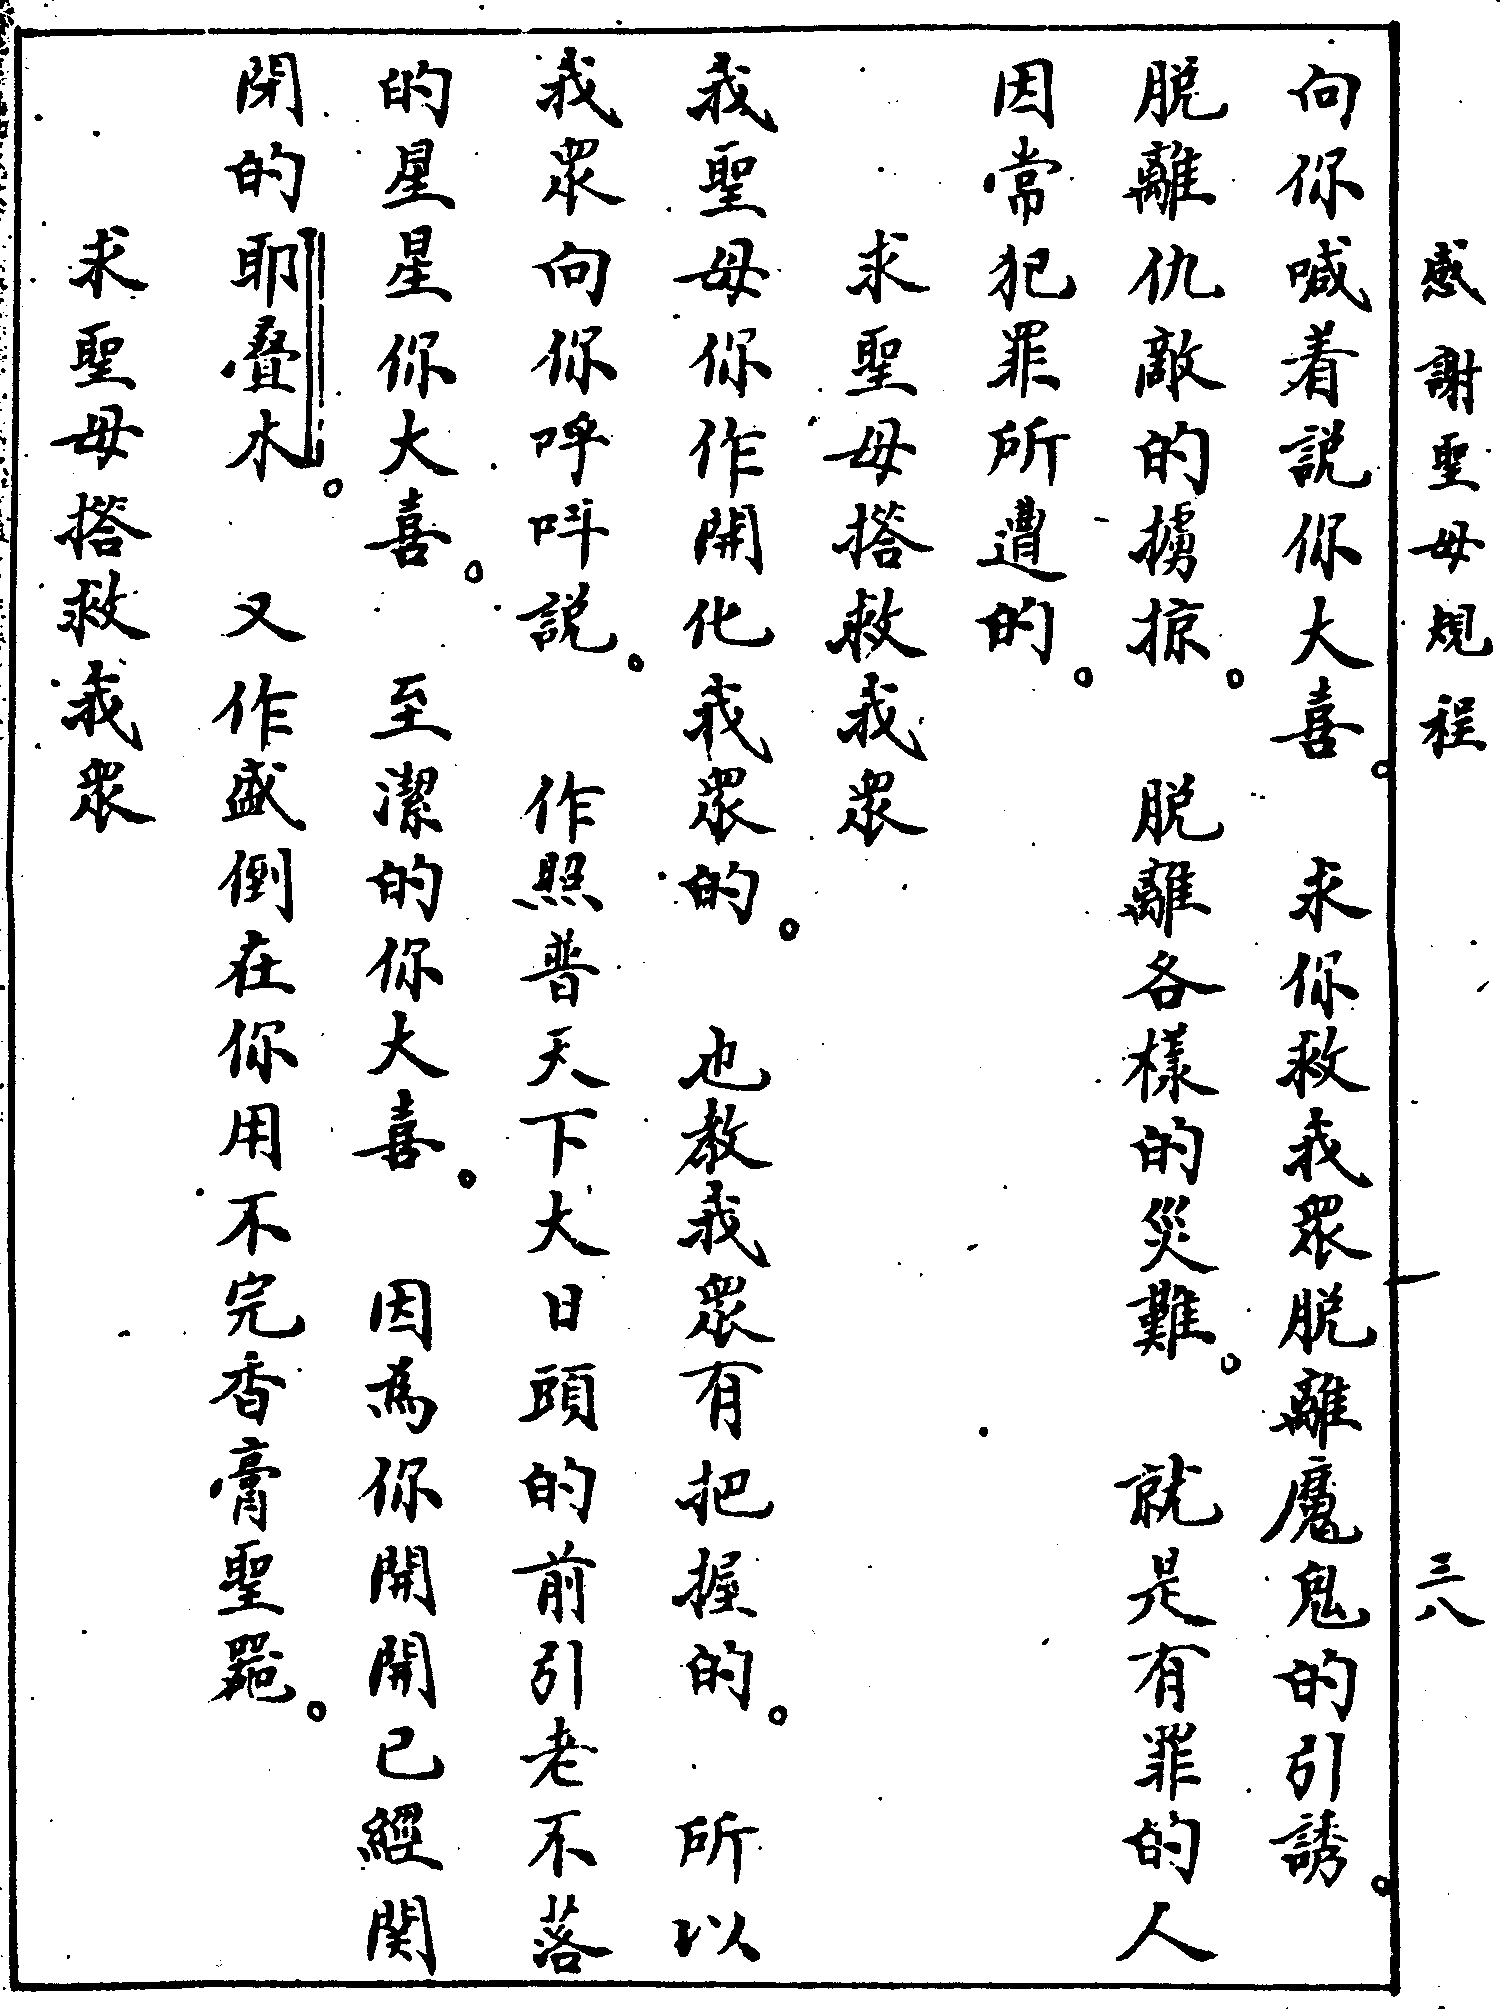 感謝聖母規程 三八
向你喊着説你大喜。 求你救我眾脫離魔鬼的引誘。
脫離仇敵的擄掠。 脫離各樣的災難。 就是有罪的人
因常犯罪所遭的。
求聖母搭救我眾
我聖母你作開化我眾的。 也教我眾有把握的。 所以
我眾向你呼呌説。 作照普天下大日頭的前引老不落
的星星你大喜。 至潔的你大喜。 因為你開開已經関
閉的耶疊木。 又作盛倒在你用不完香膏聖
求聖母搭救我眾